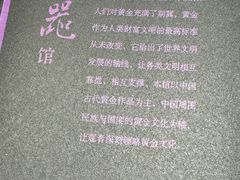 器
馆
人们对黄金充满了期冀，黄金
作为人类财富文明的最高标准
从未改变，它给出了世界文明
发展的轴线，让各类文明相互
靠拢，相互支撑，本馆以中国
古代黄金作品为主，中国周围
民族与国度的黄金文化为辅，
让观者深刻领略黄金文化。